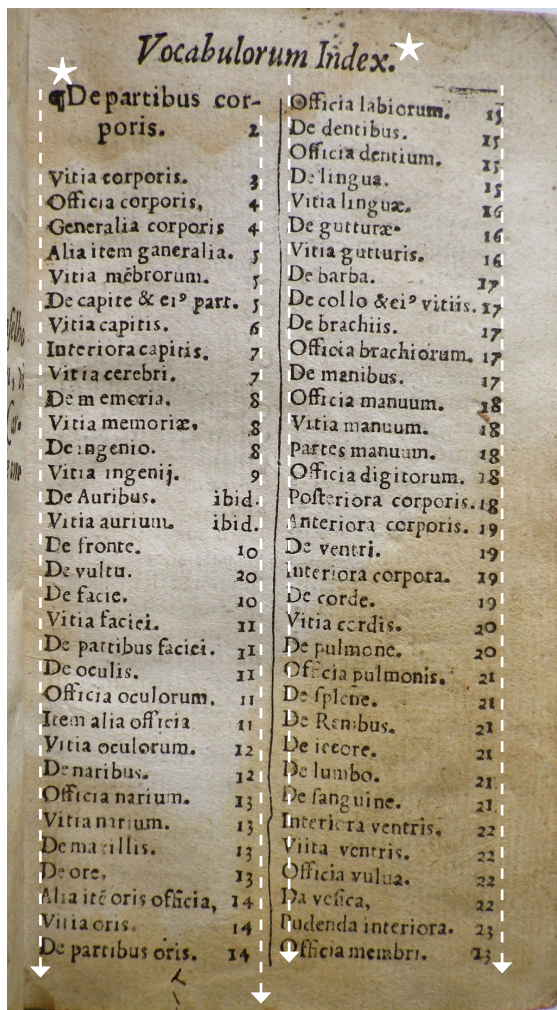 Vocabulorum Index.
¶De partibus cor-
poris. 2
Vitia corporis. 3
Officia corporis, 4
Generalia corporis 4
Alia item ganeralia. 5
Vitia mēbrorum. 5
De capite & eiꝰ part. 5
Vitia capitis. 6
Interiora capitis. 7
Vitia cerebri. 7
De memoria. 8
Vitia memoriæ. 8
De ingenio. 8
Vitia ingenij. 9
De Auribus. ibid.
Vitia aurium. ibid.
De fronte. 10
De vultu. 20
De facie. 10
Vitia faciei. 11
De partibus faciei. 11
De oculis. 11
Officia oculorum. 11
Item alia officia 11
Vitia oculorum. 12
De naribus. 12
Officia narium. 13
Vitia narium. 13
De maxillis. 13
De ore. 13
Alia itē oris officia, 14
Vitia oris. 14
De partibus oris. 14
Officia labiorum. 15
De dentibus. 15
Officia dentium. 15
De lingua. 15
Vitia linguæ. 16
De gutturæ. 16
Vitia gutturis. 16
De barba. 17
De collo & eiꝰ vitiis. 17
De brachiis. 17
Officia brachiorum. 17
De manibus. 17
Officia manuum. 18
Vitia manuum. 18
Partes manuum. 18
Officia digitorum. 18
Poſteriora corporis. 18
Anteriora corporis. 19
De ventri. 19
Interiora corpora. 19
De corde. 19
Vitia cordis. 20
De pulmone. 20
Officia pulmonis. 21
De ſplene. 21
De Renibus. 21
De iecore. 21
De lumbo. 21
De ſanguine. 21
Interiora ventris. 22
Viita ventris. 22
Officia vulua. 22
Da veſica, 22
Pudenda interiora. 23
Officia membri. 23